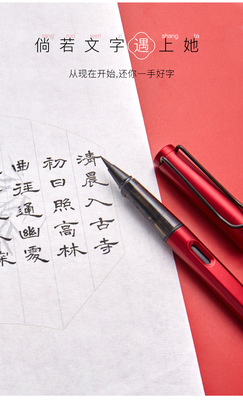 倘若文字遇上她
shang
ta
从现在开始,还你一手好字
清晨入古寺
初日照高林
曲径通幽处